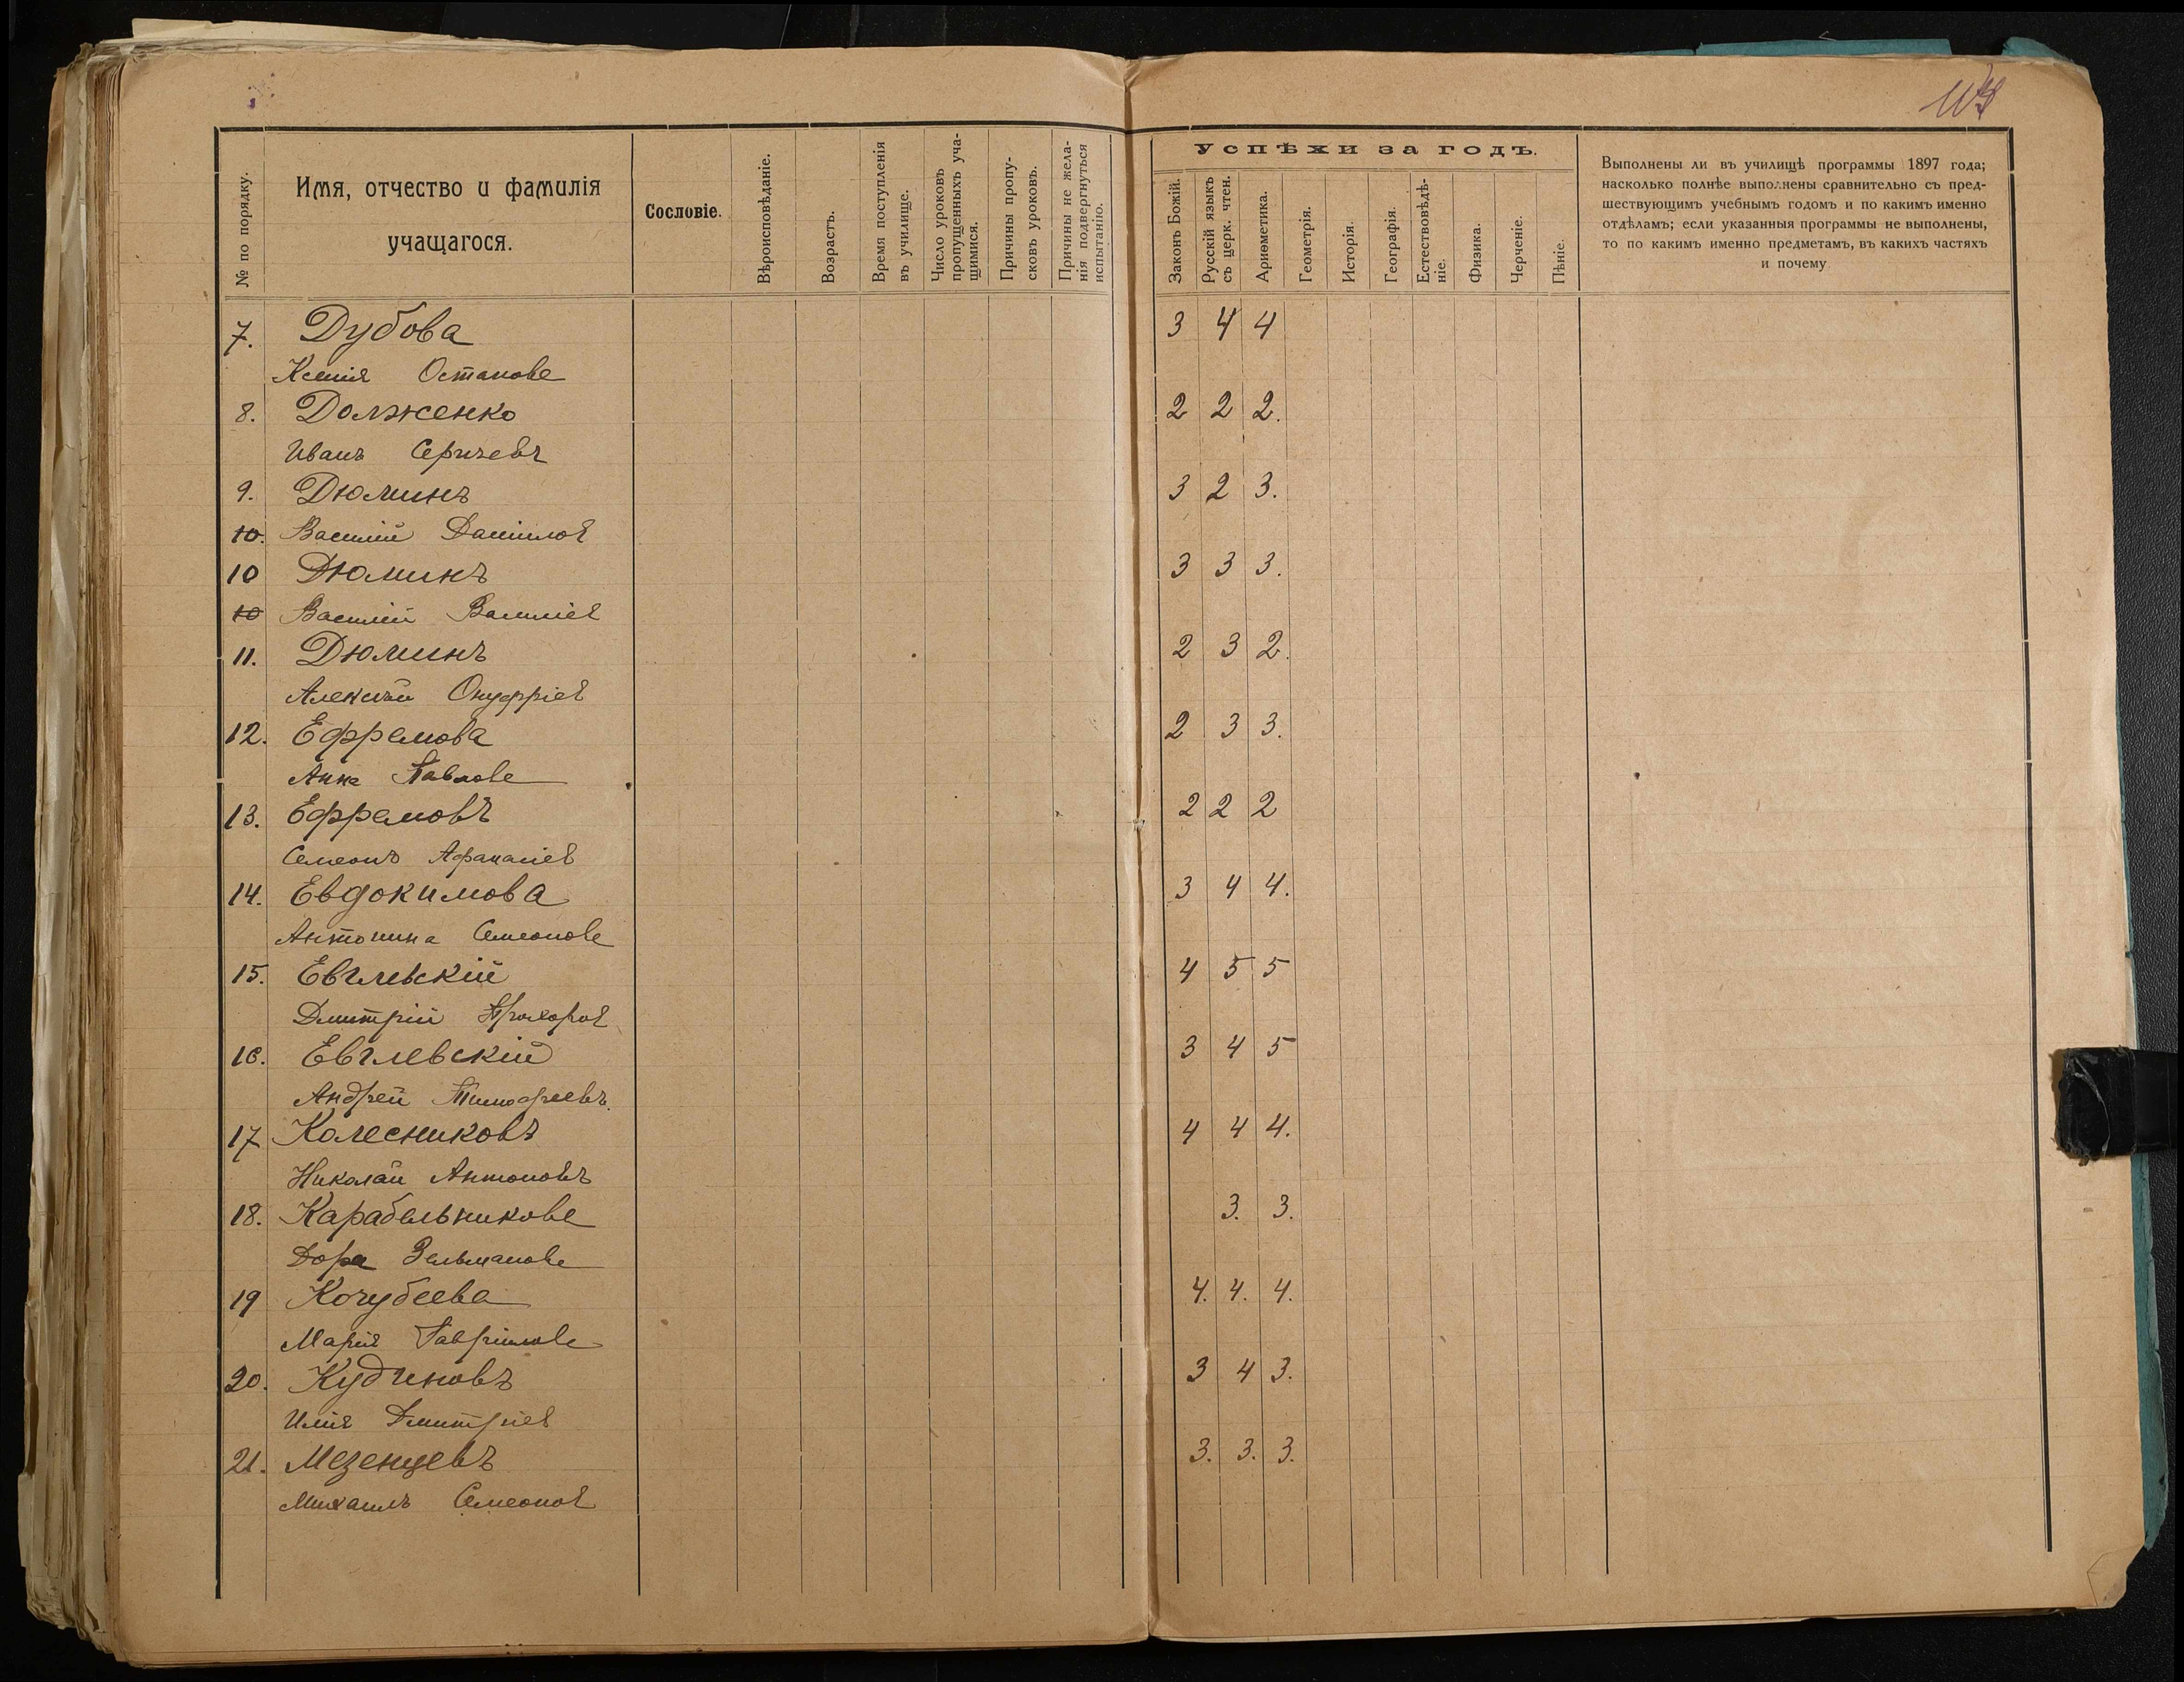 № по порядку.
Имя, отчество и фамилія
учащагося.
Сословіе.
Вѣроисповѣданіе.
Возрастъ.
Время поступленія
въ училище.
Число уроковъ
пропущенныхъ уча-
щимися.
Причины пропу-
сковъ уроковъ.
Причины не жела-
нія подвергнуться
испытанію.
Успѣхи за годъ.
Законъ Божій.
Русскій языкъ
съ церк. чтен.
Ариѳметика.
Геометрія.
Исторія.
Географія.
Естествовѣдѣ-
ніе.
Физика.
Черченіе.
Пѣніе.
Выполнены ли въ училищѣ программы 1897 года;
насколько полнѣе выполнены сравнительно съ пред-
шествующимъ учебнымъ годомъ и по какимъ именно
отдѣламъ; если указанныя программы не выполнены,
то по какимъ именно предметамъ, въ какихъ частяхъ
и почему
7. Дубова 3 4 4
Ксенія Остапова
8. Долженко 2 2 2.
Иванъ Сергѣевъ
9. Дюминъ 3 2 3.
10. Василій Даніиловъ
10 Дюминъ 3 3 3.
10 Василій Василіевъ
11. Дюминъ 2 3 2.
Алексѣй Онуфріевъ
12. Ефремова 2 3 3.
Анна Павлова
13. Ефремовъ 2 2 2
Семеонъ Афанасіевъ
14. Евдокимова 3 4 4.
Антонина Семеонова
15. Евглевскій 4 5 5
Дмитрій Прохоровъ
16. Евглевскій 3 4 5
Андрей Тимофеевъ.
17 Колесниковъ 4 4 4.
Николай Антоновъ
18. Карабельникова 3. 3.
Дора Зельманова
19 Кочубеева 4. 4. 4.
Марія Гавріилова
20. Кудиновъ 3 4 3.
Илія Дмитріев
21. Мезенцевъ 3. 3. 3.
Михаилъ Семеонов